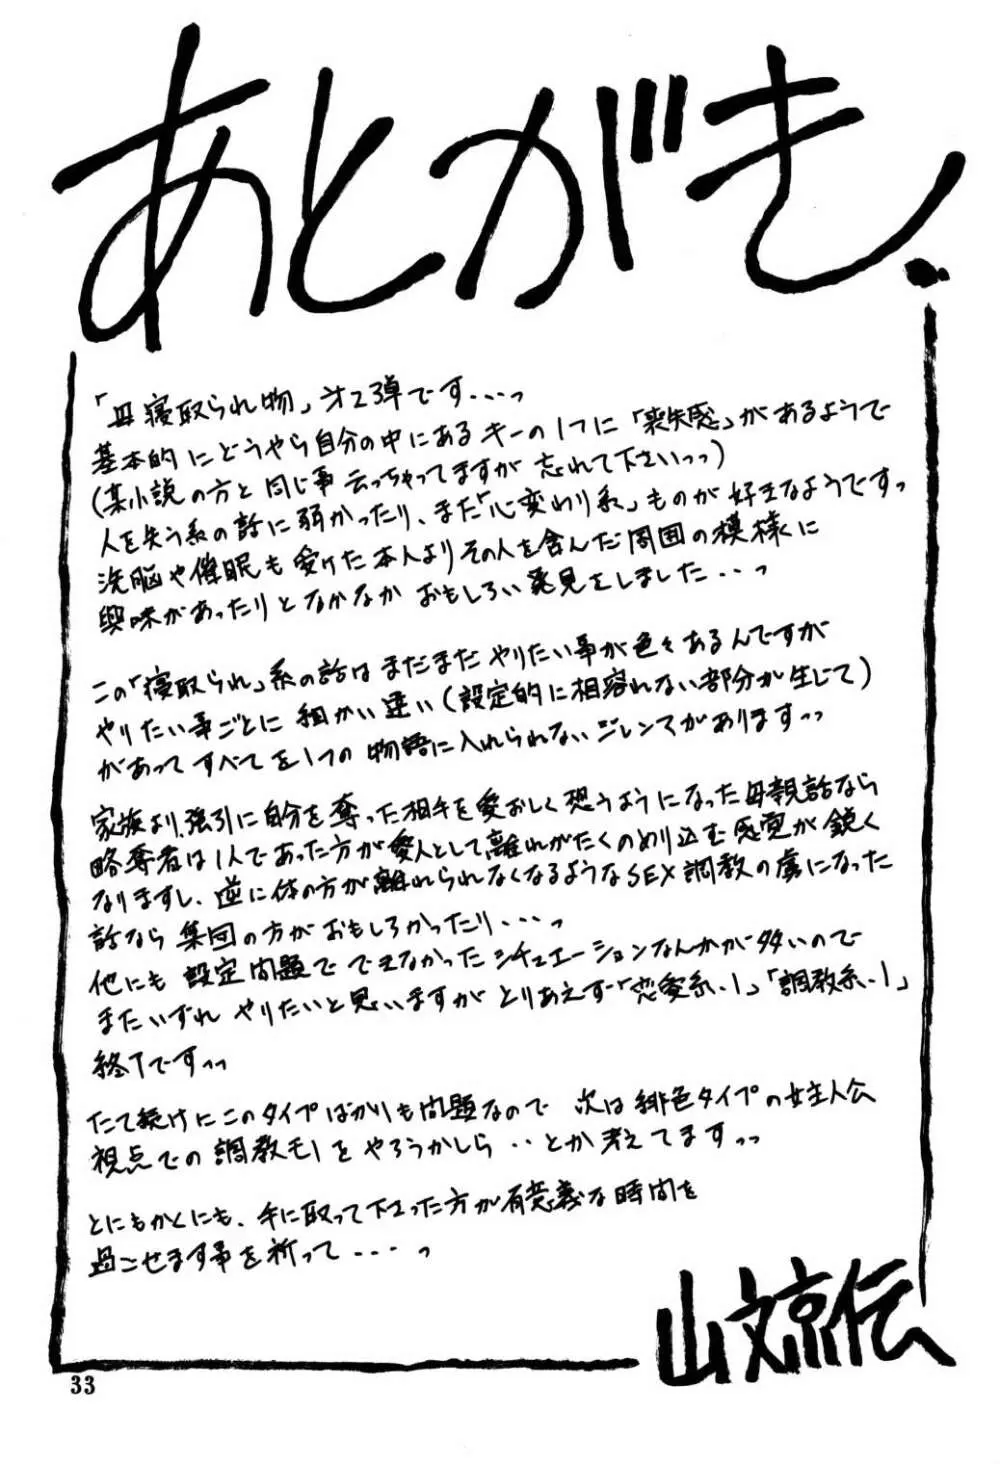 あとがき.
「母寝取られ物」才2弾です...っ
基本的にどうやら自分の中にあるキーの1つに「喪失感」があるようで
(某小説の方と同じ事云っちゃってますが忘れて下さいっっ)
人を失う系の話に弱かったり、また「心変わり系」ものが好きなようですっ
洗脳や催眠も受けた本人よりその人を含んだ周囲の模様に
興味があったりとなかなかおもしろい発見をしました...っ
この「寝取られ」系の話はまだまだやりたい事が色々あるんですが
やりたい事ごとに細かい違い(設定的に相容れない部分が生じて)
があってすべてを1つの物語に入れられないジレンマがありますっっ
家族より、強引に自分を奪った相手を愛おしく想うようになった母親話なら
略奪者は1人であった方が愛人として離れがたくのめり込む感覚が鋭く
なりますし、逆に体の方が離れられなくなるようなSEX調教の虜になった
話なら集団の方がおもしろかったり...っ
他にも設定問題でできなかったシチュエーションなんかが多いので
またいずれやりたいと思いますがとりあえず「恋愛系.1」「調教系.1」
終了ですっっ
たて続けにこのタイプばかりも問題なので次は緋色タイプの女主人公
視点での調教モノをやろうかしら..とか考えてますっっ
とにもかくにも、手に取って下さった方が有意義な時間を
過ごせます事を祈って...っ
山文京伝
33